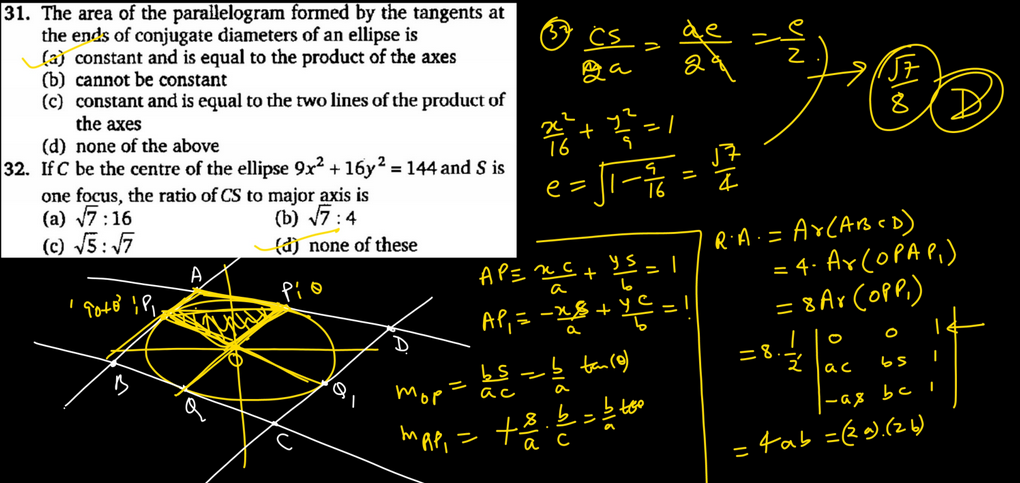 31. The area of the parallelogram formed by the tangents at
the ends of conjugate diameters of an ellipse is
(a) constant and is equal to the product of the axes
(b) cannot be constant
(c) constant and is equal to the two lines of the product of
the axes
(d) none of the above
32. If C be the centre of the ellipse 9x² + 16y² = 144 and S is
one focus, the ratio of CS to major axis is
(a) √7 : 16
(b) √7 : 4
(c) √5 : √7
(d) none of these
32 CS/2a = ae/2a = e/2
√7/8 D
x²/16 + y²/9 = 1
e = √(1 - 9/16) = √7/4
A
P; θ
'90+θ' ; P₁
O
D
B
Q
Q₁
C
AP ≡ xc/a + ys/b = 1
AP₁ = -xs/a + yc/b = 1
m_OP = bs/ac = b/a tan(θ)
m_AP₁ = +s/a · b/c = b/a tanθ
R.A. = Ar(ABCD)
= 4. Ar(OPAP₁)
= 8 Ar(OPP₁)
= 8. 1/2 | 0 0 1 |
| ac bs 1 |
| -as bc 1 |
= 4ab = (2a).(2b)